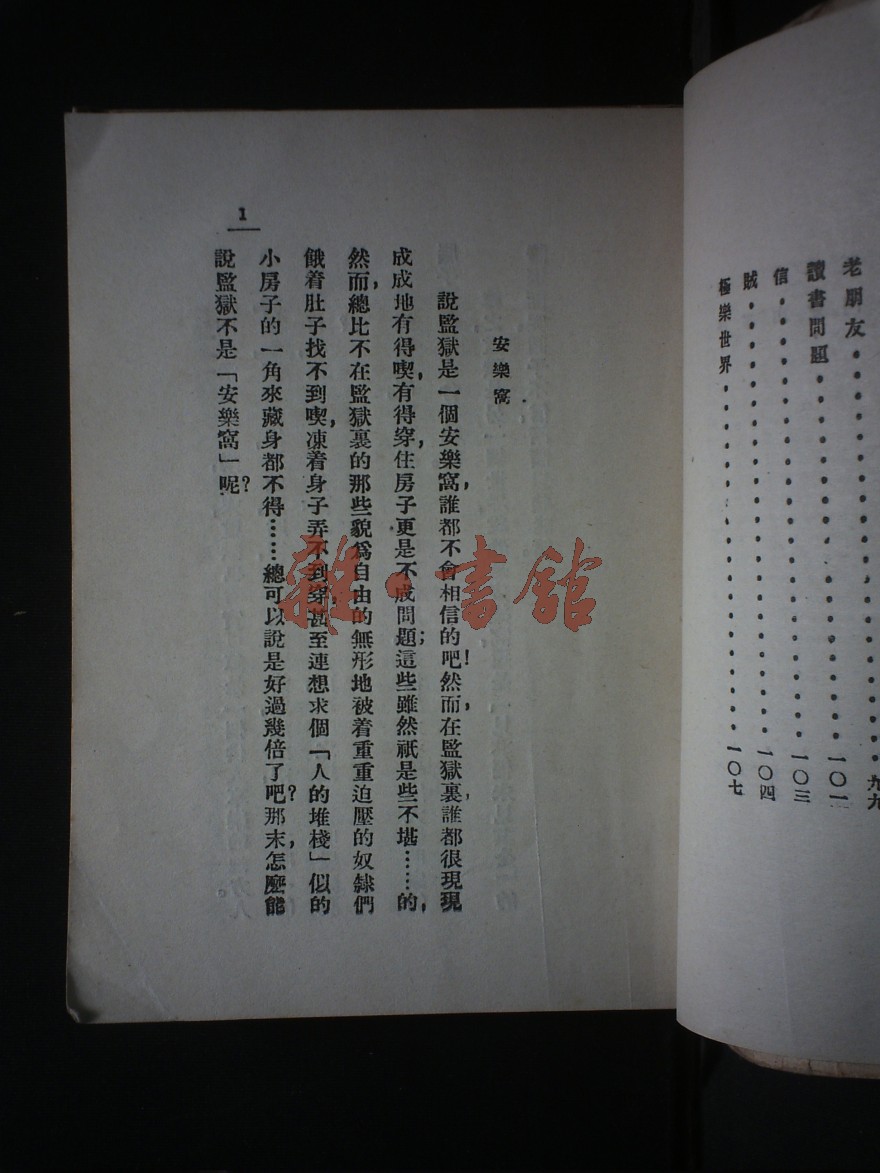 老朋友・・・・・・・・・・・・・・・・・・九九
讀書問題・・・・・・・・・・・・・・・・一〇一
信・・・・・・・・・・・・・・・・・・・・一〇三
賊・・・・・・・・・・・・・・・・・・・・一〇四
極樂世界・・・・・・・・・・・・・・・・一〇七
安樂窩
說監獄是一個安樂窩，誰都不會相信的吧！然而在監獄裏，誰都很現現
成成地有得喫，有得穿，住房子更是不成問題；這些雖然祇是些不堪……的，
然而，總比不在監獄裏的那些貌爲自由的無形地被着重重迫壓的奴隸們
餓着肚子找不到喫，凍着身子弄不到穿，甚至連想求個「人的堆棧」似的
小房子的一角來藏身都不得……總可以說是好過幾倍了吧？那末，怎麼能
說監獄不是「安樂窩」呢？
1
雜・書館